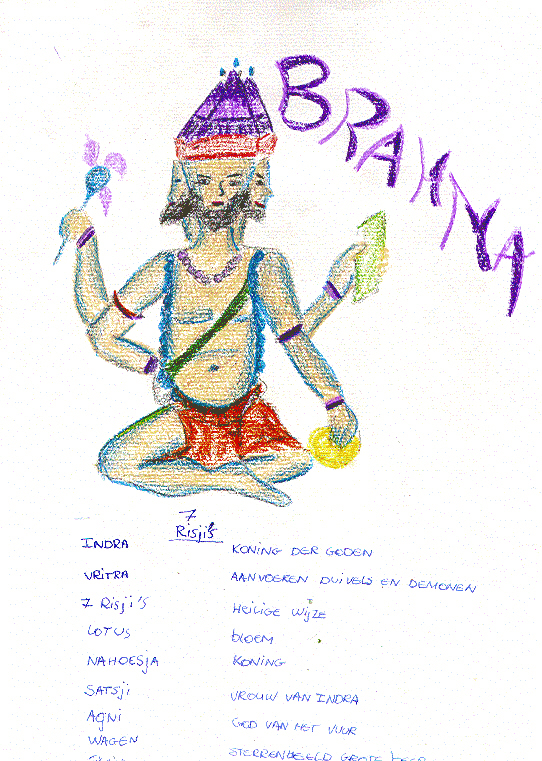 BRAHMA
7
Risji's
INDRA KONING DER GODEN
VRITRA AANVOEREN DUIVELS EN DEMONEN
7 Risji's HEILIGE WIJZE
LOTUS bloem
NAHOESJA KONING
SATSJI VROUW VAN INDRA
AGNI GOD VAN HET VUUR
WAGEN STERRENBEELD GROTE BEER